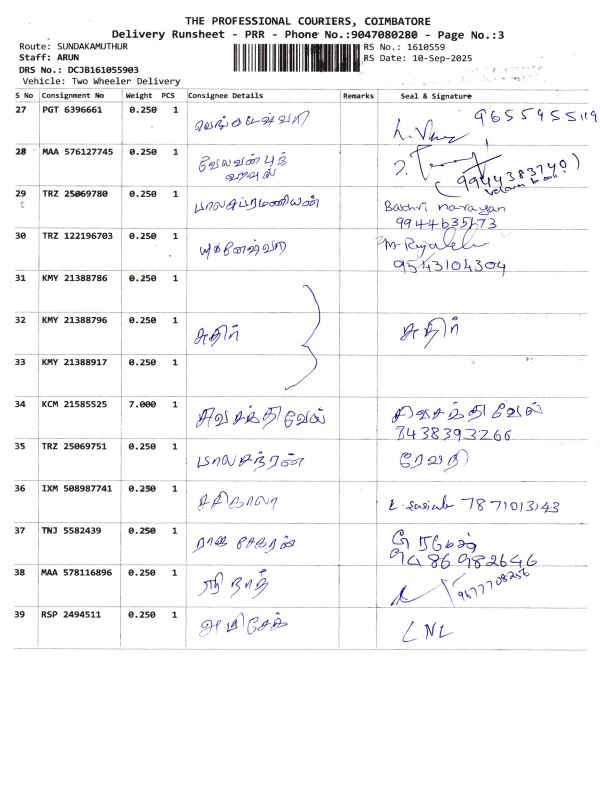 THE PROFESSIONAL COURIERS, COIMBATORE
Delivery Runsheet - PRR - Phone No.:9047080280 - Page No.:3
Route: SUNDAKAMUTHUR
RS No.: 1610559
Staff: ARUN
RS Date: 10-Sep-2025
DRS No.: DCJB161055903
Vehicle: Two Wheeler Delivery
S No Consignment No Weight PCS Consignee Details Remarks Seal & Signature
27 PGT 6396661 0.250 1 வெங்கடேஷ்வரி 9655955119
28 MAA 576127745 0.250 1 வேலவன் புக்
ஹவுஸ் (9944383740)
29 TRZ 25069780 0.250 1 பாலசுப்ரமணியன் Bathri narayan
9944635673
30 TRZ 122196703 0.250 1
9543104304
31 KMY 21388786 0.250 1
32 KMY 21388796 0.250 1 அதிர் அதிர்
33 KMY 21388917 0.250 1
34 KCM 21585525 7.000 1 சிவசக்திவேல் சிவசக்திவேல்
8438393266
35 TRZ 25069751 0.250 1 பாலசந்ரன் ரேவதி
36 IXM 508987741 0.250 1 சசிகலா 7871013143
37 TNJ 5582439 0.250 1 ராஜ சேகரன்
9486982646
38 MAA 578116896 0.250 1 ஸ்ரீ நாத் 9677708256
39 RSP 2494511 0.250 1 அபிசேக் LNL